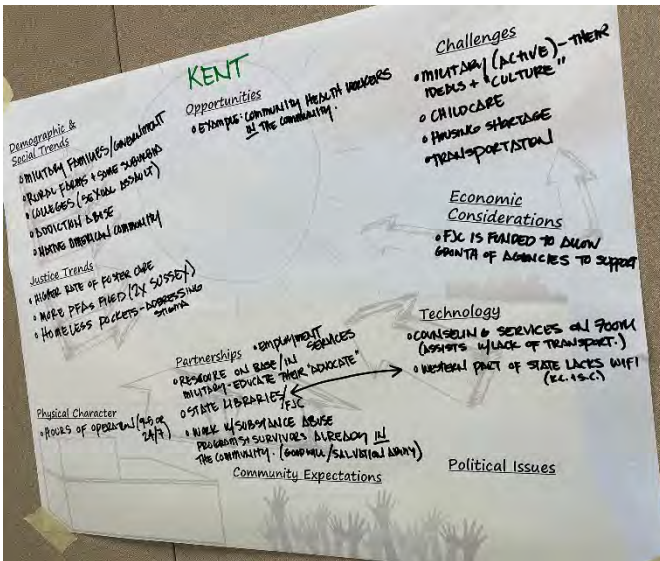 KENT
Demographic &
Social Trends
• MILITARY FAMILIES/GOVERNMENT
• RURAL FARMS + SOME SUBURBAN
• COLLEGES (SEXUAL ASSAULT)
• ADDICTION ABUSE
• NATIVE AMERICAN COMMUNITY
Justice Trends
• HIGHER RATE OF FOSTER CARE
• MORE PFAs FILED (2X SUSSEX)
• HOMELESS POCKETS - ADDRESSING
STIGMA
Physical Character
• HOURS OF OPERATION (9-5 OR
24/7)
Opportunities
• EXAMPLE: COMMUNITY HEALTH WORKERS
IN THE COMMUNITY.
Partnerships
• EMPLOYMENT
SERVICES
• RESOURCE ON BASE/IN
MILITARY - EDUCATE THEIR "ADVOCATE"
• STATE LIBRARIES/
FJC
• WORK W/SUBSTANCE ABUSE
PROGRAMS + SURVIVORS ALREADY IN
THE COMMUNITY. (GOODWILL/SALVATION ARMY)
Community Expectations
Challenges
• MILITARY (ACTIVE) - THEIR
IDEALS + "CULTURE"
• CHILDCARE
• HOUSING SHORTAGE
• TRANSPORTATION
Economic
Considerations
• FJC IS FUNDED TO ALLOW
GROWTH OF AGENCIES TO SUPPORT
Technology
• COUNSELING SERVICES ON ZOOM
(ASSISTS W/LACK OF TRANSPORT.)
• WESTERN PART OF STATE LACKS WIFI
(K.C. + S.C.)
Political Issues